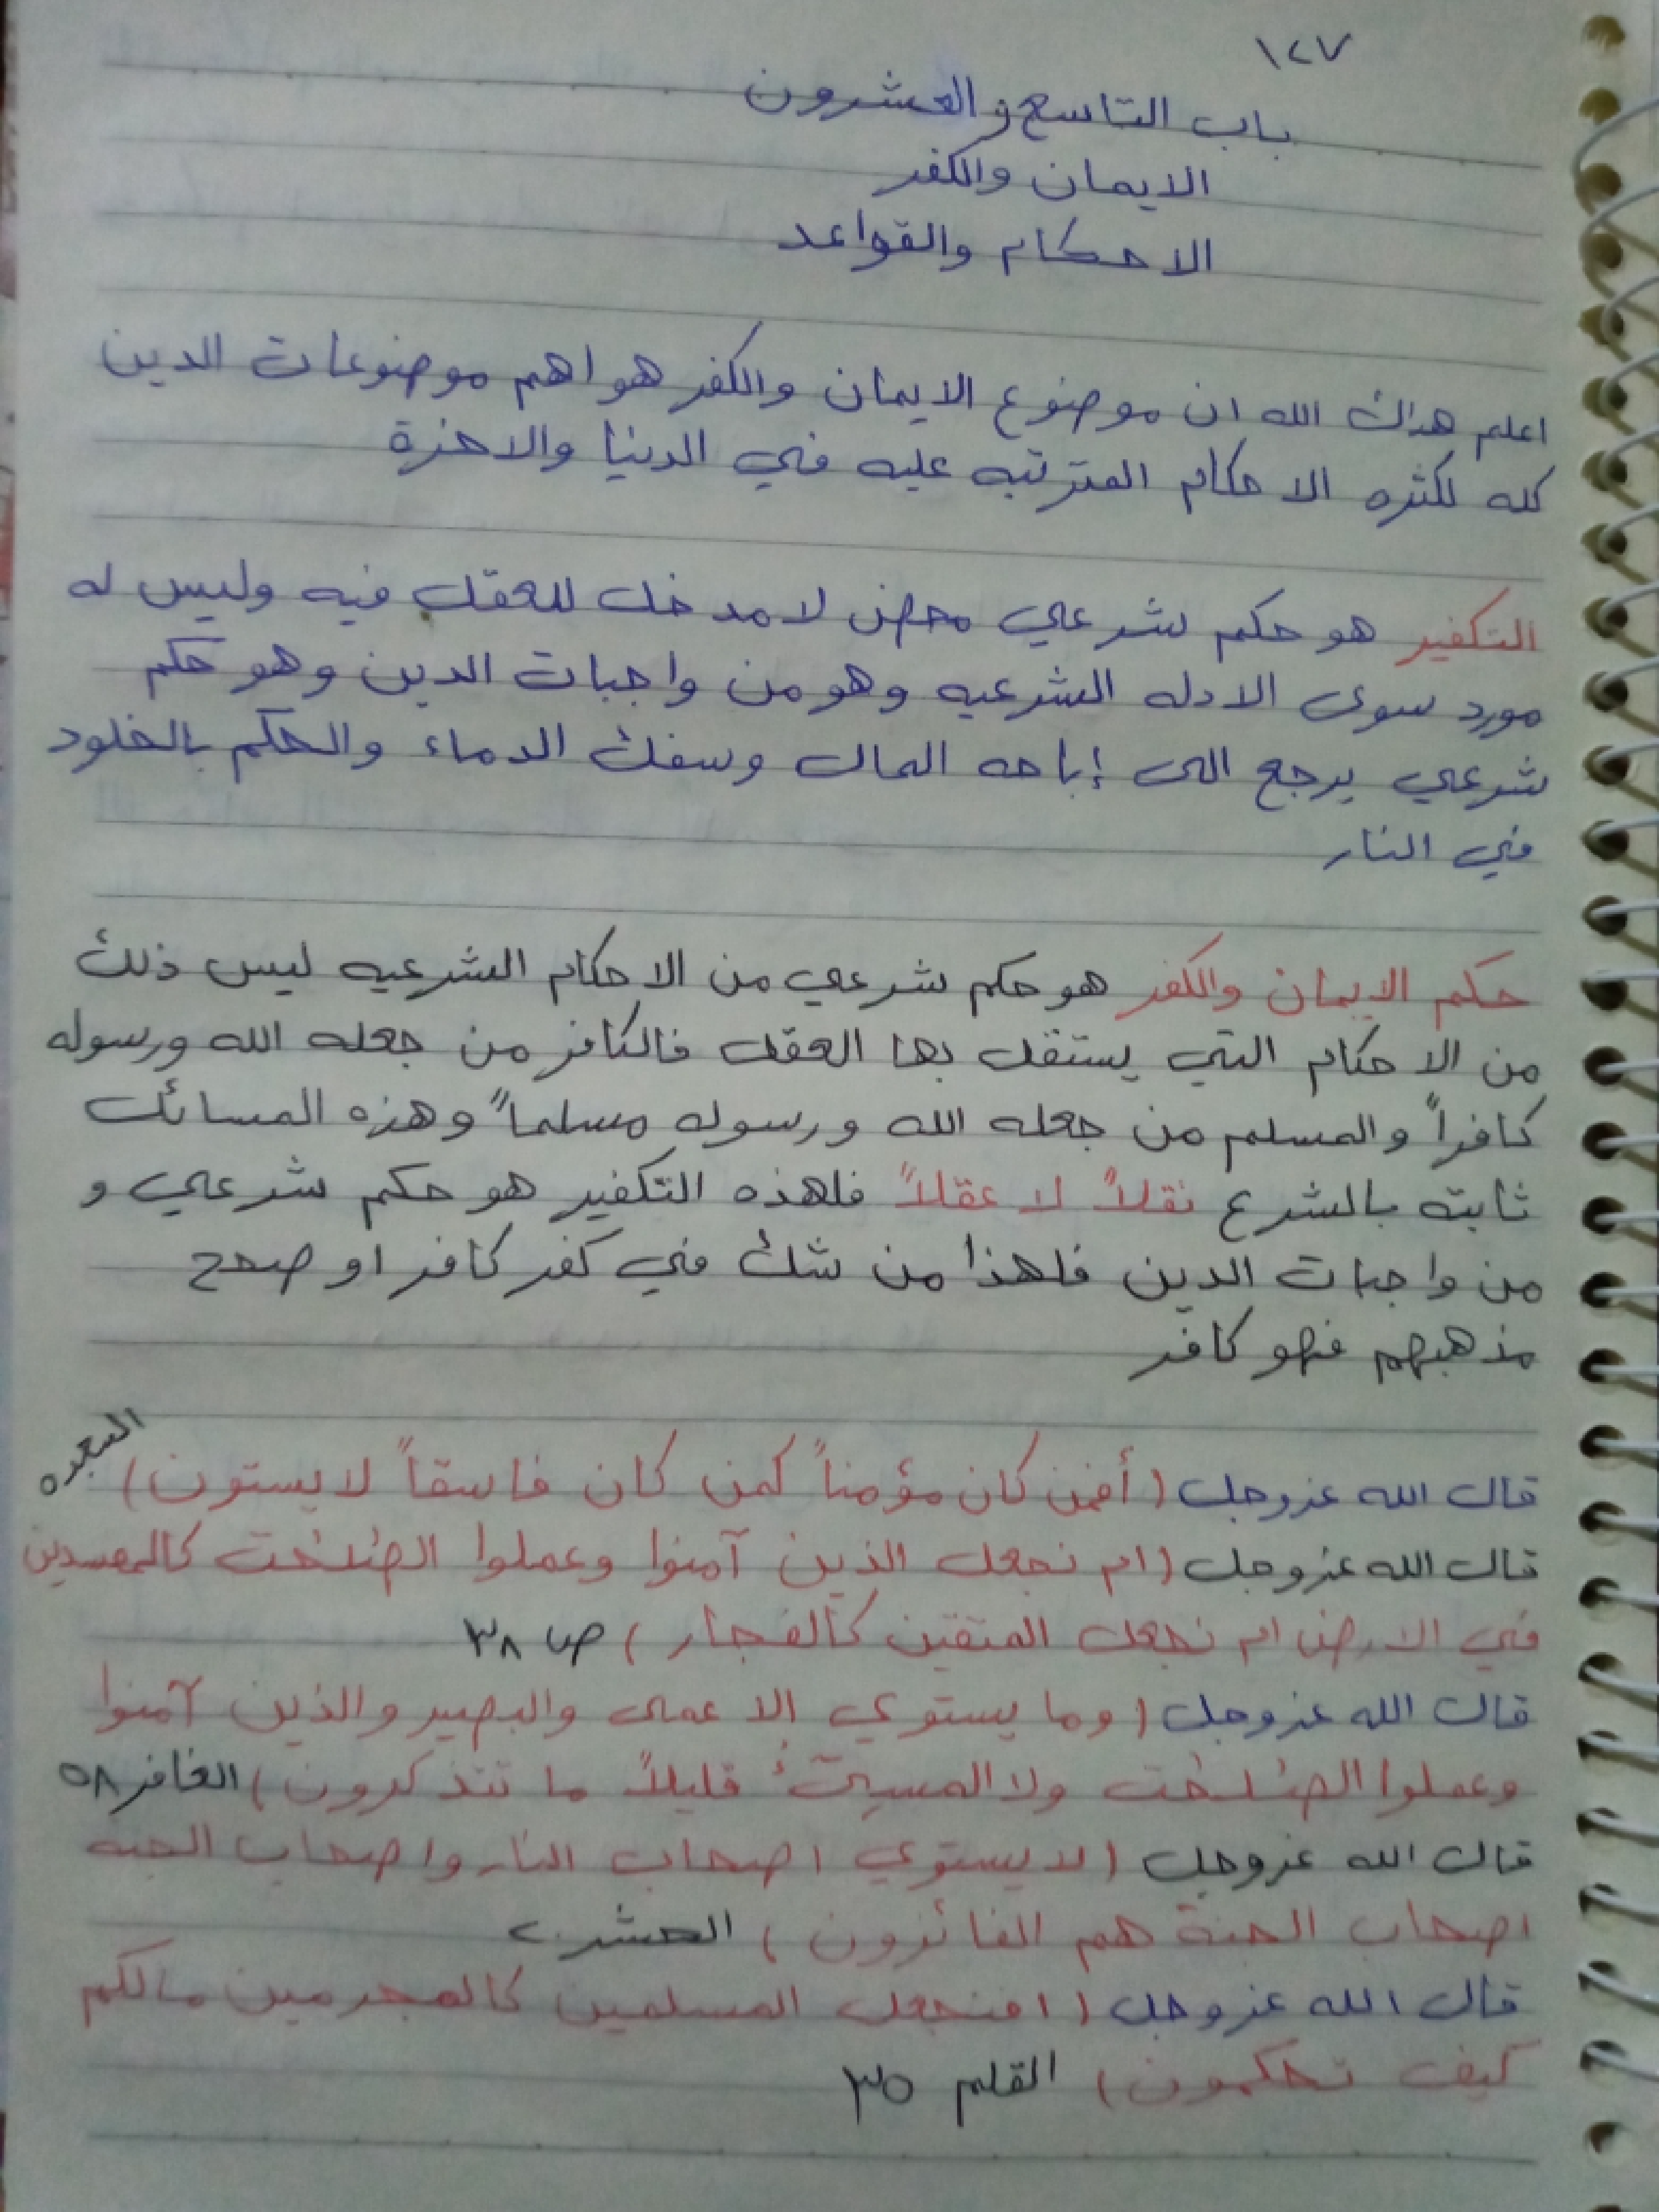 ١٤٧
باب التاسع والعشرون
الايمان والكفر
الاحكام والقواعد
اعلم هداك الله ان موضوع الايمان والكفر هو اهم موضوعات الدين
كله لكثره الاحكام المترتبه عليه في الدنيا والاخرة
التكفير هو حكم شرعي محض لا مدخل للعقل فيه وليس له
مورد سوى الادله الشرعيه وهو من واجبات الدين وهو حكم
شرعي يرجع الى إباحه المال وسفك الدماء والحكم بالخلود
في النار
حكم الايمان والكفر هو حكم شرعي من الاحكام الشرعيه ليس ذلك
من الاحكام التي يستقل بها العقل فالكافر من جعله الله ورسوله
كافراً والمسلم من جعله الله ورسوله مسلماً وهذه المسائل
ثابته بالشرع نقلاً لا عقلاً فلهذه التكفير هو حكم شرعي و
من واجبات الدين فلهذا من شك في كفر كافر او صحح
مذهبهم فهو كافر
قال الله عزوجل (أفمن كان مؤمناً كمن كان فاسقاً لا يستون)
قال الله عزوجل (ام نجعل الذين آمنوا وعملوا الصٰلحٰت كالمفسدين
في الارض ام نجعل المتقين كالفجار) ص ٣٨
قال الله عزوجل (وما يستوي الاعمى والبصير والذين آمنوا
وعملوا الصٰلحٰت ولا المسيئُ قليلاً ما تتذكرون) الغافر ٥٨
قال الله عزوجل (لا يستوي اصحاب النار واصحاب الجنه
اصحاب الجنة هم الفائزون) الحشر ٢٠
قال الله عزوجل (افنجعل المسلمين كالمجرمين مالكم
كيف تحكمون) القلم ٣٥